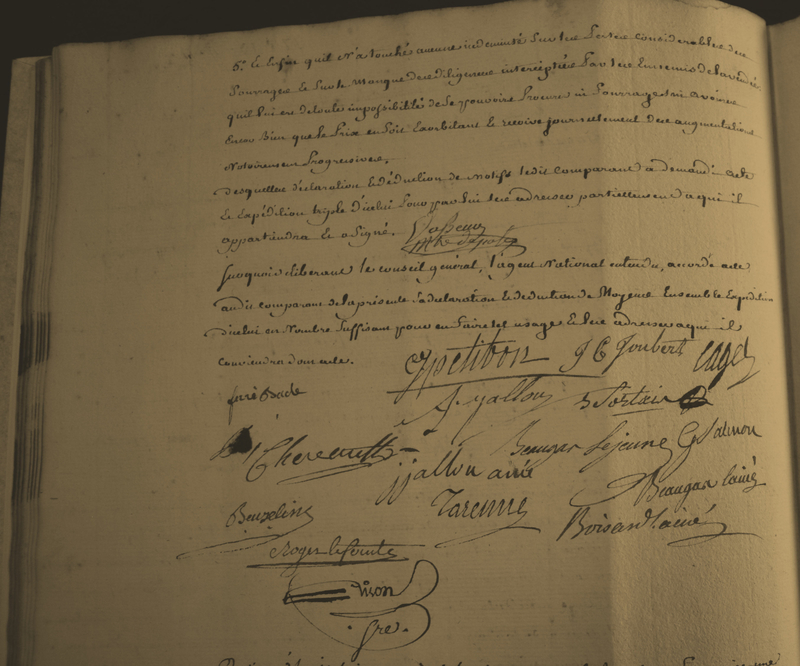 5.° et Enfin qu'il n'a touché aucune indemnité sur les pertes considerables de
fourrages et sur le manque de ses diligences interceptées par les Ennemis de la vendée
qu'il lui est de toute impossibilité de se pouvoir procurer ni fourrages ni avoines
Encor bien que le prix en soit Exorbitant et reçoive journellement des augmentations
Notoirement Progressives.
desquelles déclaration et déduction de motifs ledit comparant a demandé acte
Et Expédition triple d'icelui pour par lui être adressées partiellement a qui il
appartiendra et a signé.
Surquoi déliberant le conseil général, l'agent National entendu, accorde acte
audit comparant de la présente declaration et déduction de Moyens Ensemble Expedition
d'icelui en Nombre suffisant pour en faire tel usage et être adressées a qui il
conviendra dont acte.
Cypetibon J C Joubert
fait Bade
A. jallon
Beaugar Lejeune G Salmon
jjallon ainé
Beaugar lainé
Tarenne
Boisard lainé
Beuzelin
roger lecomte
Gre.